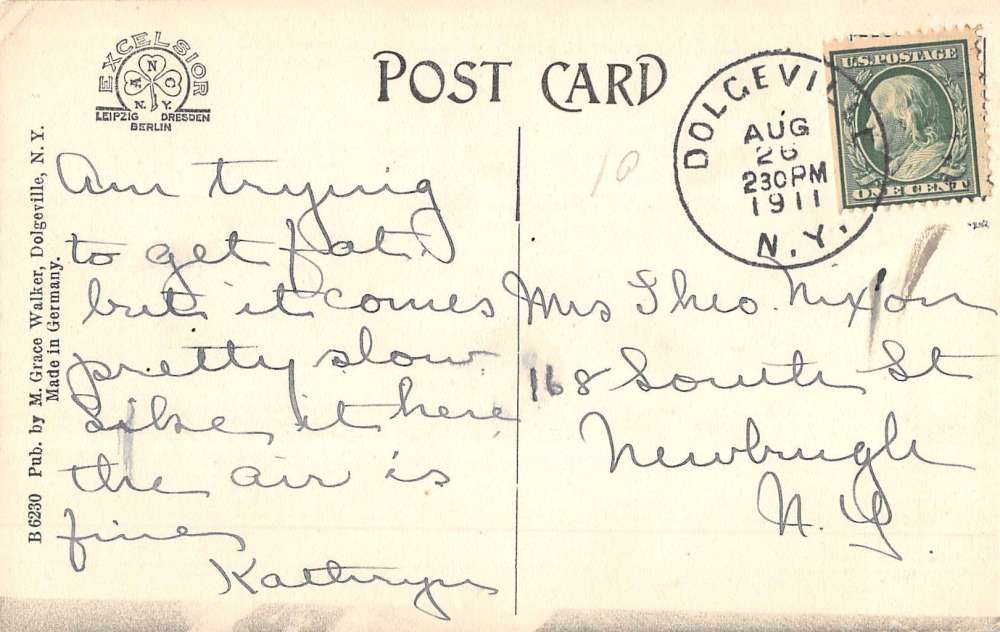 EXCELSIOR
A N C
N. Y.
LEIPZIG DRESDEN
BERLIN
POST CARD
DOLGEVI
AUG
26
230 PM
1911
N. Y.
U.S. POSTAGE
ONE CENT
10
B 6230 Pub. by M. Grace Walker, Dolgeville, N. Y.
Made in Germany.
Am trying
to get fat.
but it comes
pretty slow
Like it here
the air is
fine
Kathryn
Mrs Theo. Nixon
168 South St
Newbrugh
N. Y